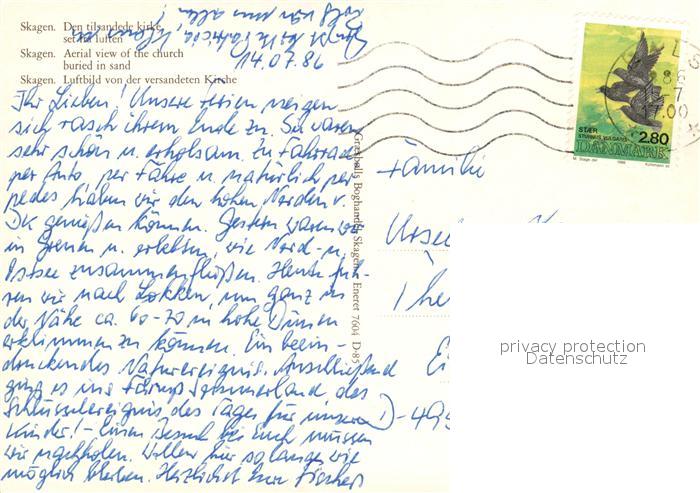 Skagen. Den tilsandede kirke
set fra luften
Skagen. Aerial view of the church
buried in sand
Skagen. Luftbild von der versandeten Kirche
14.07.86
Ihr Lieben! Unsere Ferien neigen
sich rasch ihrem Ende zu. Sie waren
sehr schön u. erholsam. Zu Fahrrad
per Auto, per Fähre u. natürlich per
pedes haben wir den hohen Norden v.
DK genießen können. Gestern waren wir
in Grenen u. erlebten, wie Nord- u.
Ostsee zusammenfließen. Heute fuh-
ren wir nach Løkken, um ganz in
der Nähe ca. 60-70 m hohe Dünen
erklimmen zu können. Ein beein-
druckendes Naturereignis. Anschließend
ging es ins Fårup Sommerland, das
Schlüsselereignis des Tages für unsere
Kinder! - Einen Besuch bei Euch müssen
wir nachholen. Wollen für so lange wie
möglich bleiben. Herzlichst Eure Fischers
Boghandel, Skagen
Eneret 7604 D-85
STÆR
STURNUS VULGARIS
2.80
DANMARK
1986
Familie
D-495
privacy protection
Datenschutz